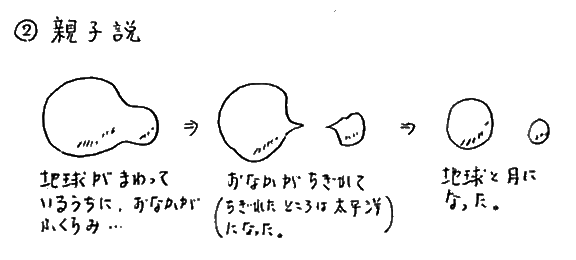 ② 親子説
⇒
⇒
地球が まわって
いるうちに、おなかが
ふくらみ…
おなかが ちぎれて
(ちぎれた ところは 太平洋)
になった。
地球と 月に
なった。